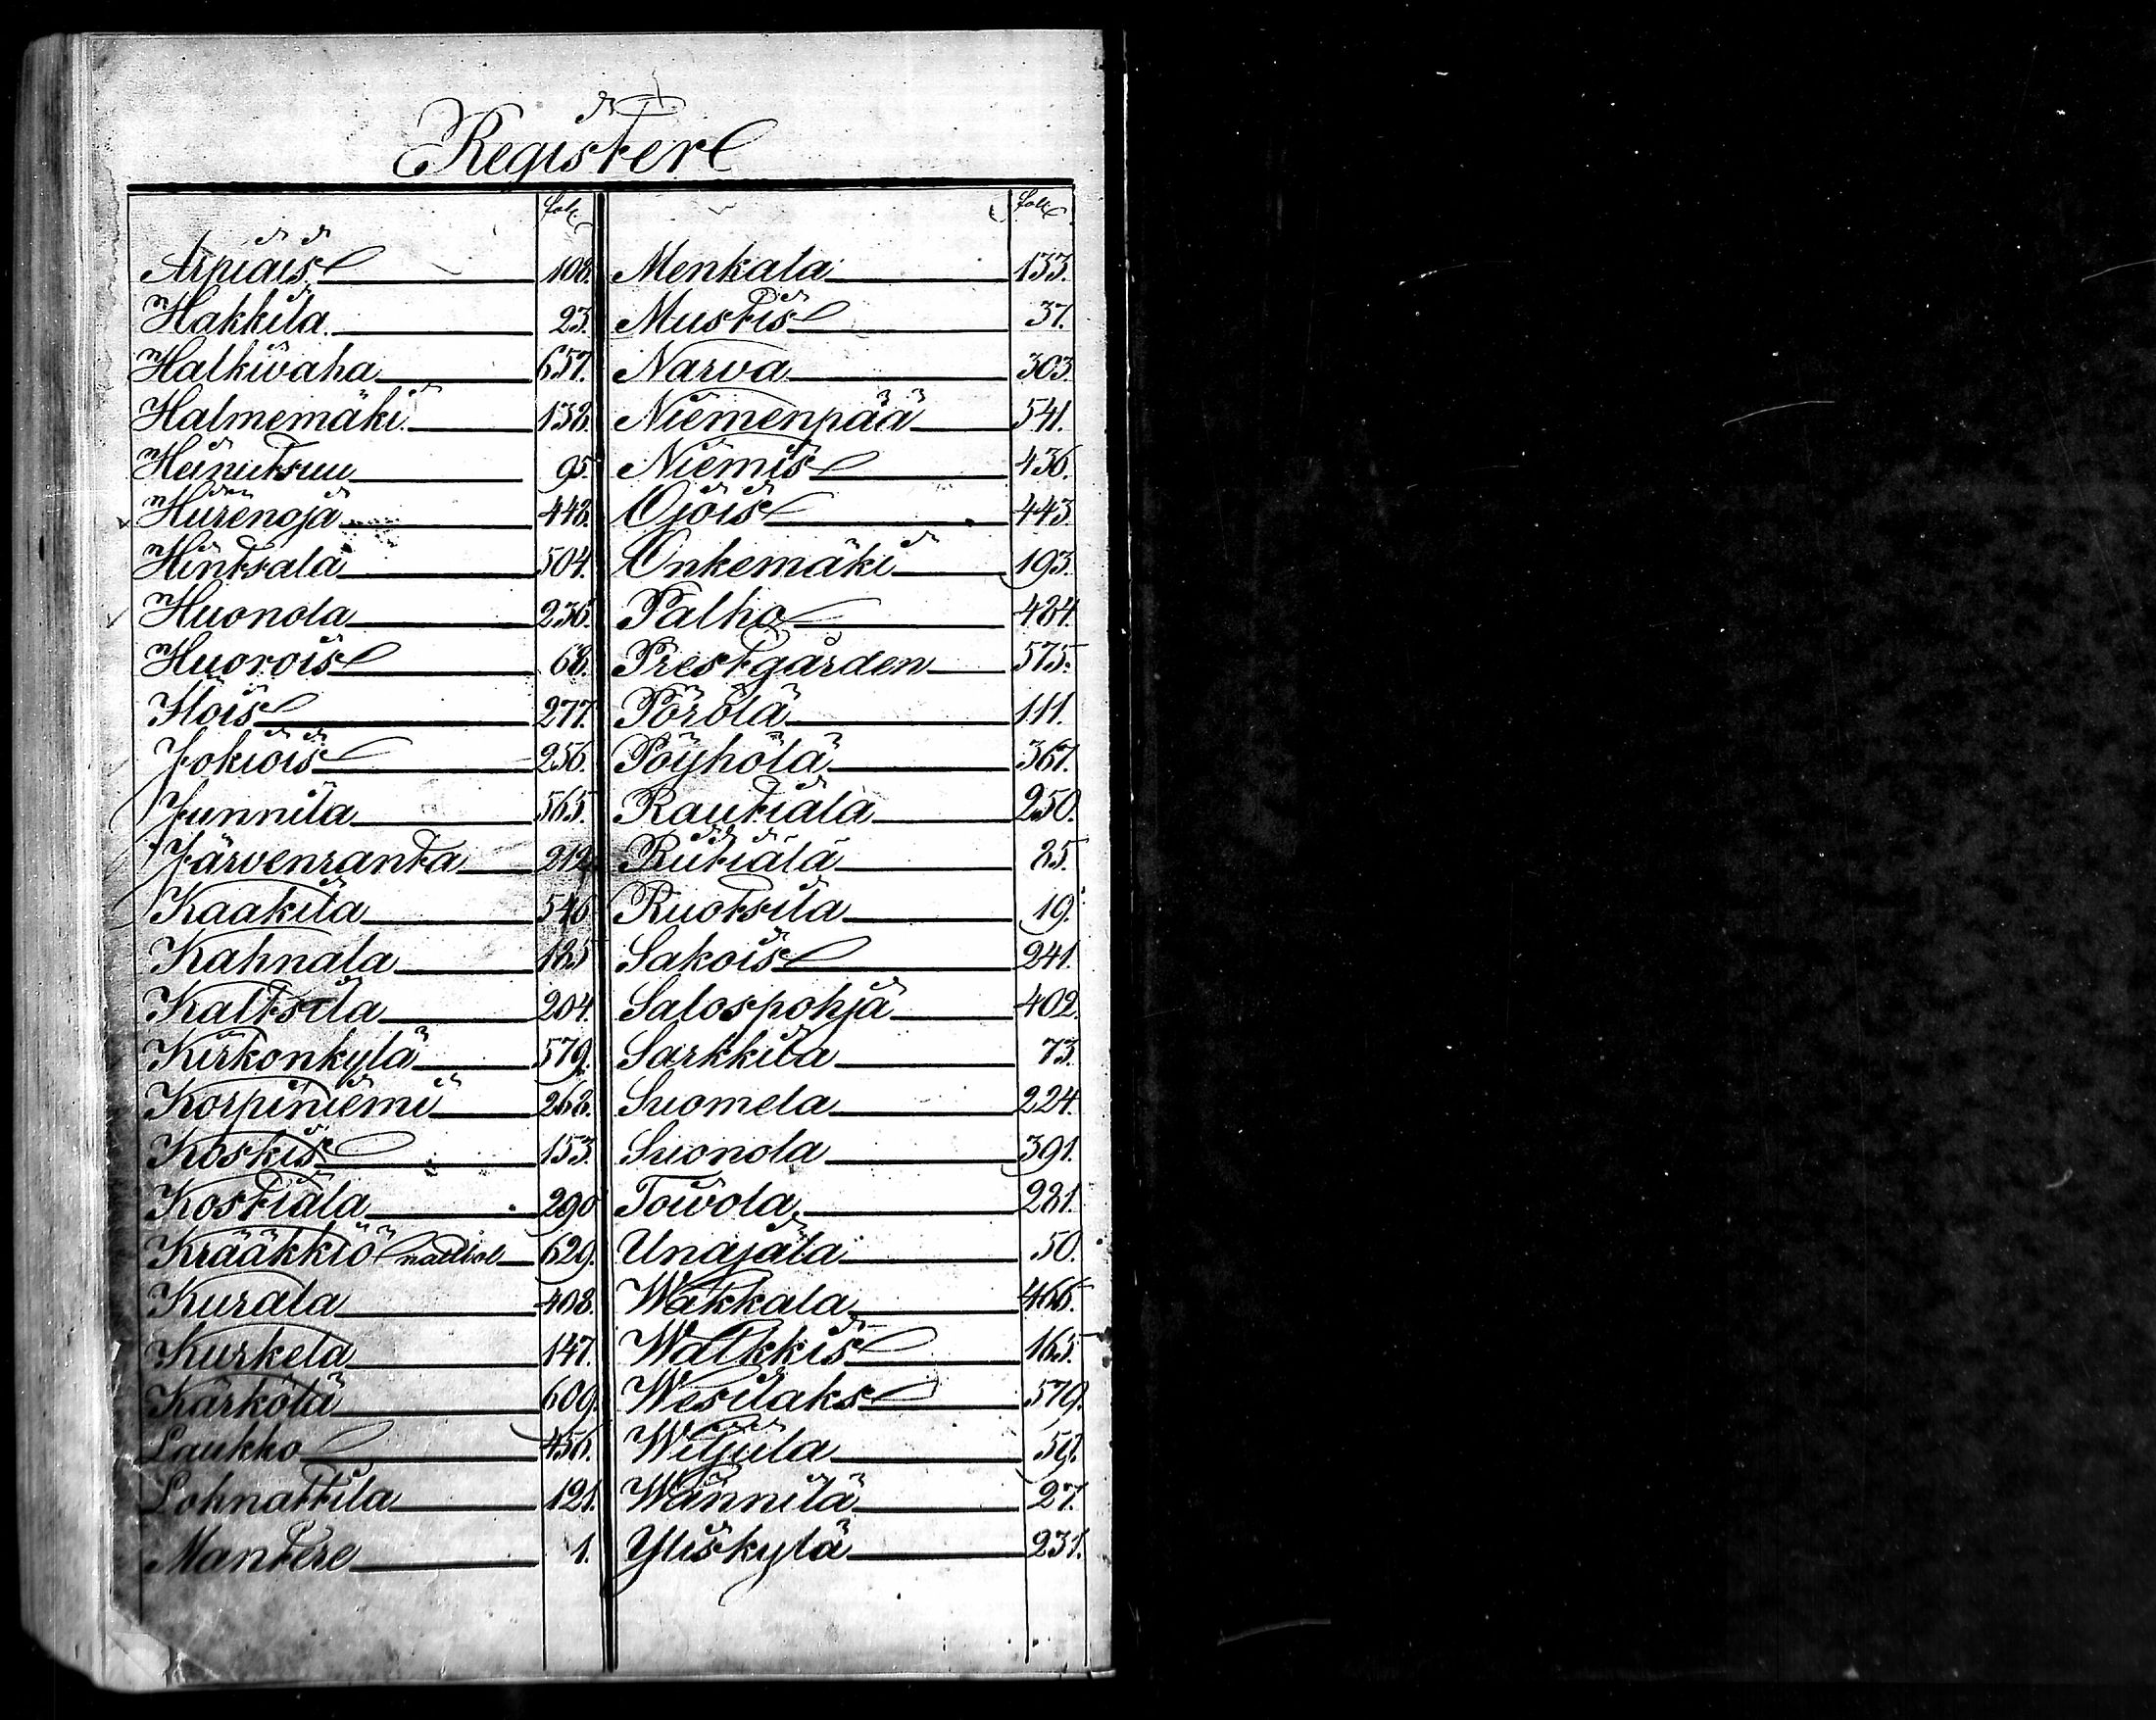 Register
fol.
Arpiais 108.
Hakkila 23.
Halkivaha 657.
Halmemäki 138.
Heinutsuu 95.
Hurenoja 448.
Hintsala 504.
Huonola 236.
Huorois 68.
Ilois 277.
Jokiois 256.
Junnila 565.
Järvenranta 212.
Kaakila 546.
Kahnala 185
Kaltsila 204.
Kirkonkylä 579.
Korpiniemi 268.
Koskis 153.
Kostiala 290
Krääkkiö 629.
Kurala 408.
Kurkela 147.
Kärkölä 609.
Laukko 456.
Lohnattila 121.
Mantere 1.
fol.
Menkala 133.
Mustis 37.
Narva 303.
Niemenpää 541.
Niemis 436.
Ojois 443.
Onkemäki 193.
Palho 484.
Prestgården 575.
Pörölä 111.
Pöyhölä 367.
Rautiala 250.
Riitiälä 85.
Ruotsila 19.
Sakois 241.
Salospohja 402.
Sarkkila 73.
Suomela 224.
Suonola 391.
Toivola 281.
Unajala 50.
Wakkala 466.
Walkkis 165.
Wesilaks 579.
Wiljula 59.
Wännilä 27.
Yliskylä 231.